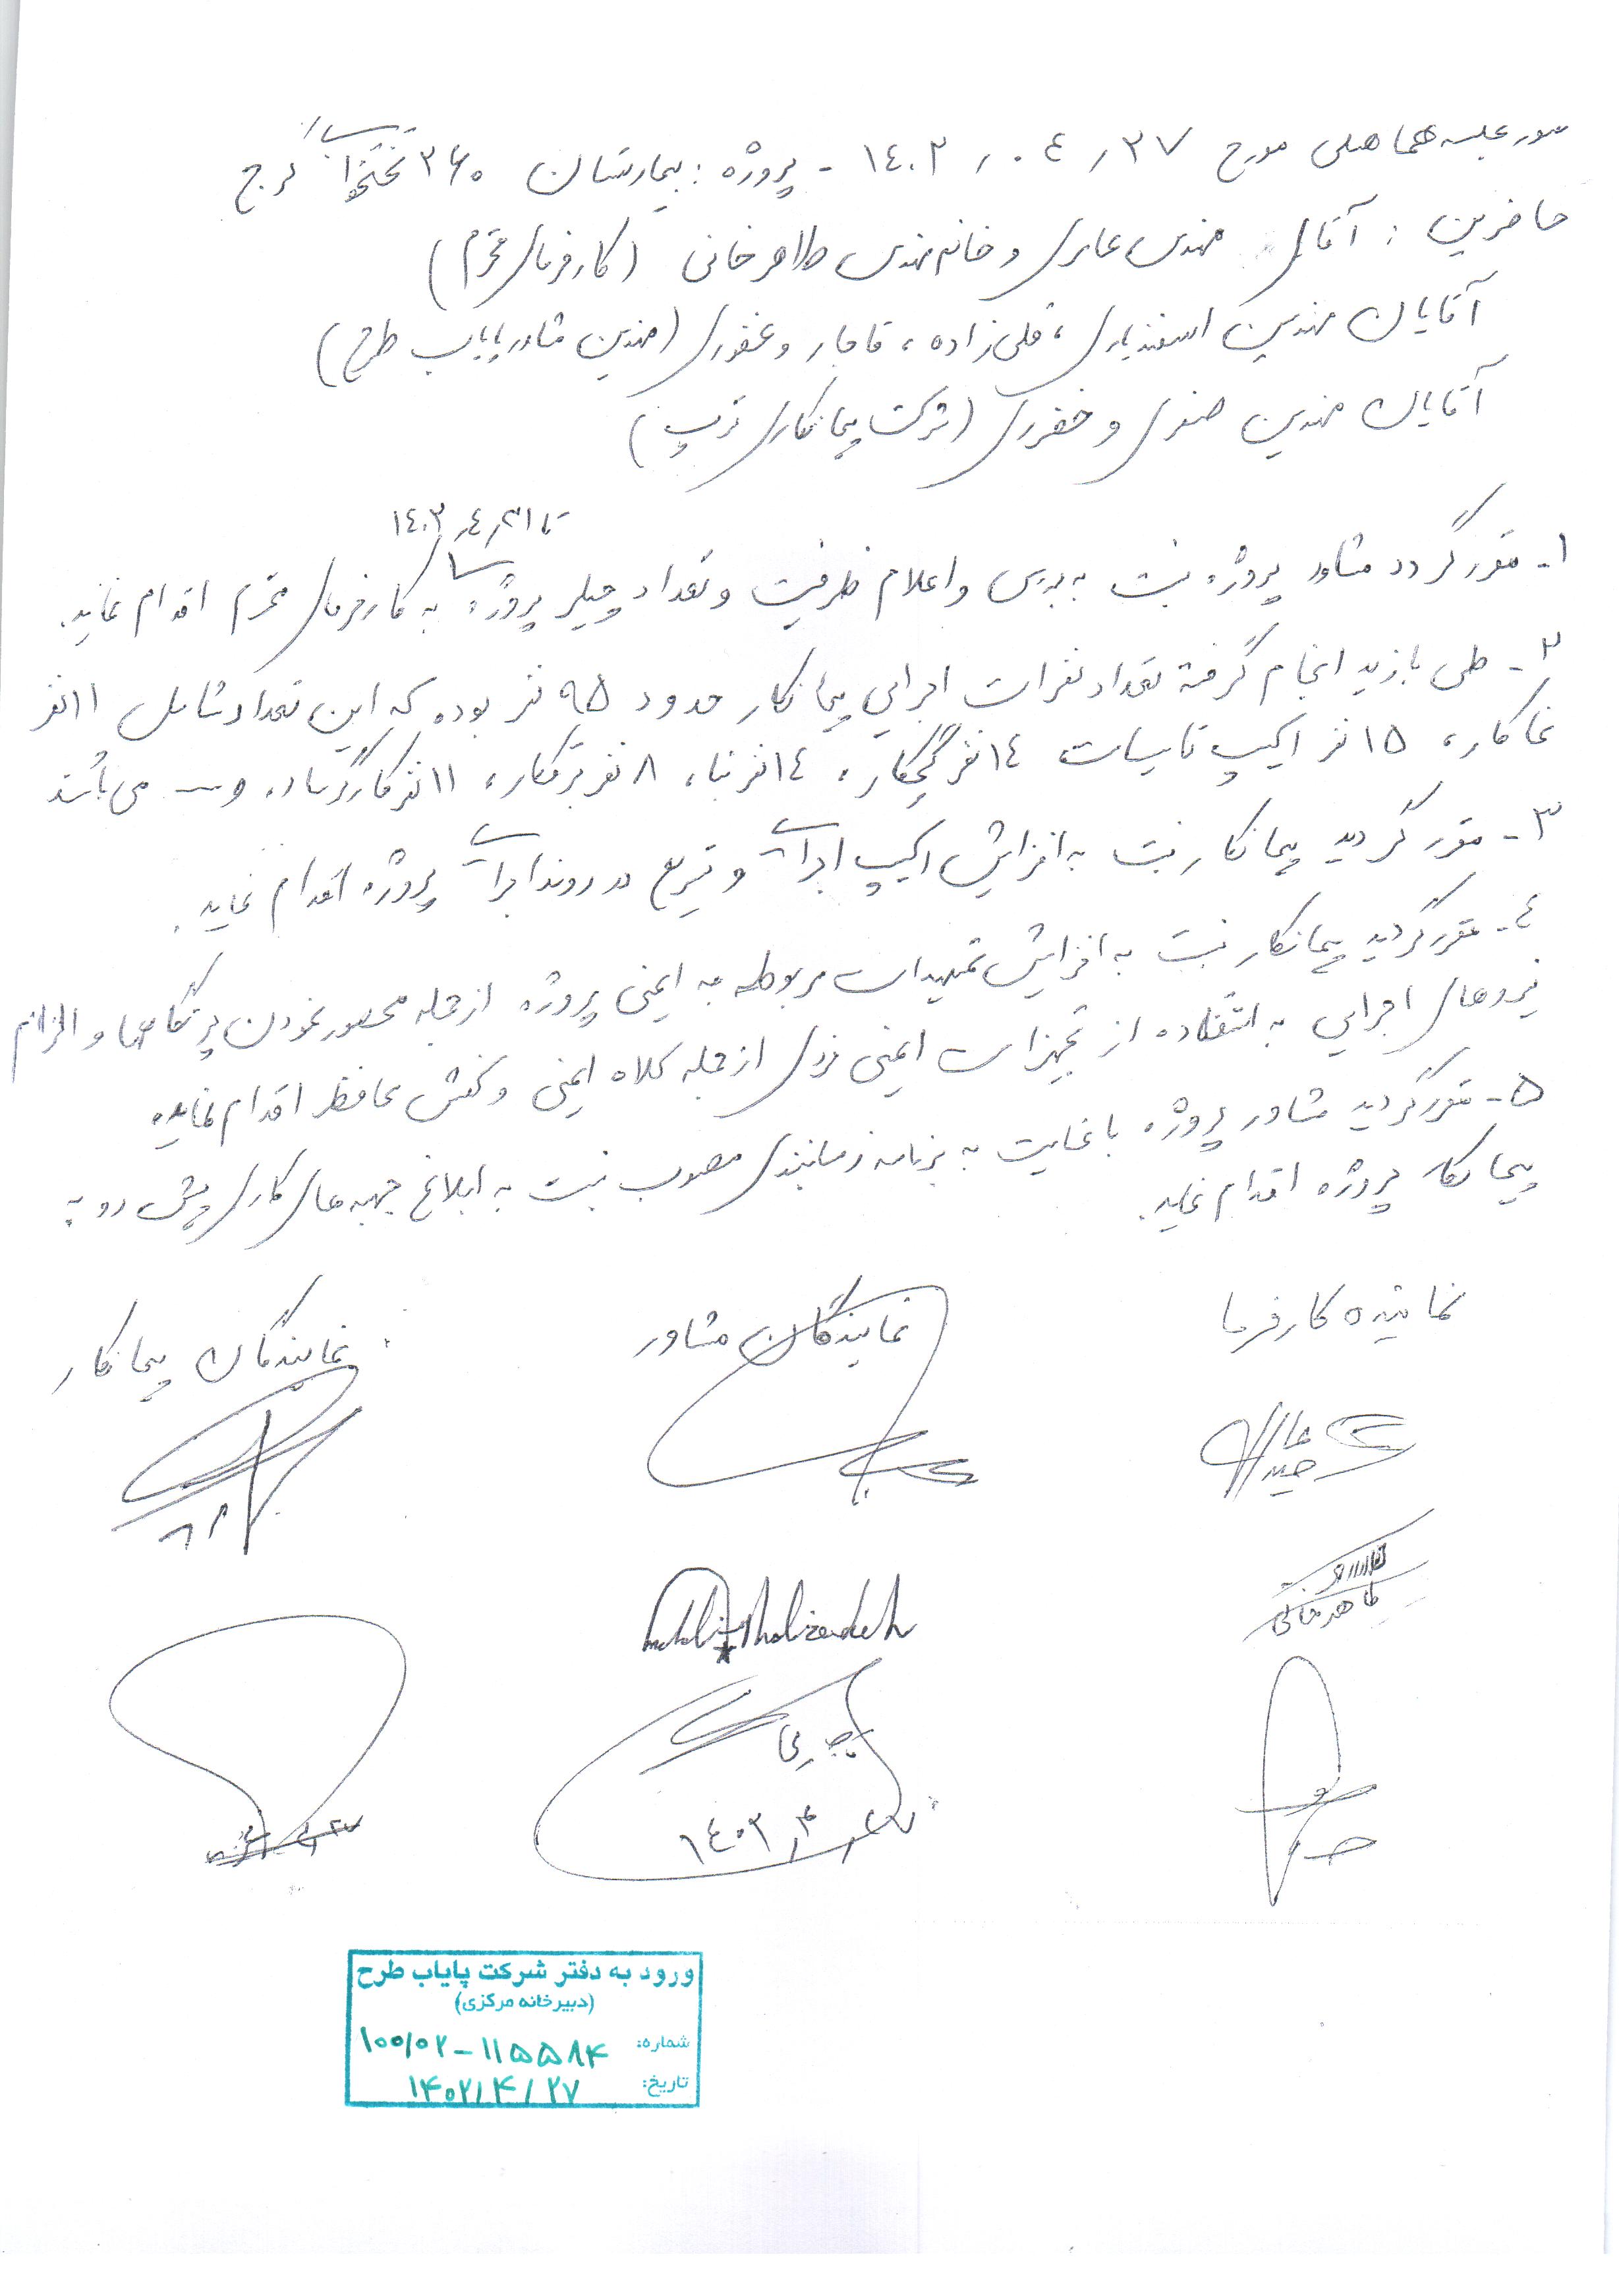 صورتجلسه هماهنگی مورخ ۱۴۰۲/۰۴/۲۷ - پروژه : بیمارستان ۲۶۰ تختخوابی کرج
حاضرین : آقای مهندس عابدی و خانم مهندس طاهرخانی (کارفرمای محترم)
آقایان مهندسین اسفندیاری ، قلی زاده ، قاجار و غفوری (مهندسین مشاور پایاب طرح)
آقایان مهندسین صفوی و خضری (شرکت پیمانکاری)
تا ۱۴۰۲/۴/۳۱
۱- مقرر گردد مشاور پروژه نسبت به بررسی و اعلام ظرفیت و تعداد چیلر پروژه به کارفرمای محترم اقدام نماید.
۲- طی بازدید انجام گرفته تعداد نفرات اجرایی پیمانکار حدود ۹۵ نفر بوده که این تعداد شامل ۱۱ نفر
نماکار، ۱۵ نفر اکیپ تاسیسات ۱۴ نفر گچکار ، ۱۴ نفر بنا، ۸ نفر برقکار، ۱۱ نفر کارگر ساده و ... می باشد
۳- مقرر گردید پیمانکار نسبت به افزایش اکیپ اجرایی و تسریع در روند اجرایی پروژه اقدام نماید.
۴- مقرر گردید پیمانکار نسبت به افزایش تمهیدات مربوطه به ایمنی پروژه از جمله محصور نمودن پرتگاهها و الزام
نیروهای اجرایی به استفاده از تجهیزات ایمنی فردی از جمله کلاه ایمنی و کفش محافظ اقدام نماید.
۵- مقرر گردید مشاور پروژه با عنایت به برنامه زمانبندی مصوب نسبت به ابلاغ جبهه های کاری پیش رو به
پیمانکار پروژه اقدام نماید.
نماینده کارفرما
نمایندگان مشاور
نمایندگان پیمانکار
طاهرخانی
ورود به دفتر شرکت پایاب طرح
(دبیرخانه مرکزی)
شماره: ۱۰۰/۰۲-۱۱۵۵۸۴
تاریخ: ۱۴۰۲/۴/۲۷